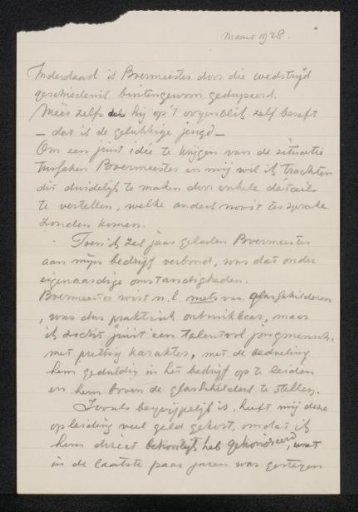 Maart 1928.
Inderdaad is Boermeester door die wedstrijd
geschiedenis buitengewoon gedupeerd.
Meer zelfs dan hij op 't oogenblik zelf beseft
— dat is de gelukkige jeugd —
Om een juist idée te krijgen van de situatie
tusschen Boermeester en mij wil ik trachten
dit duidelijk te maken door enkele details
te vertellen, welke anders nooit ter sprake
zouden komen.
Toen ik zes jaar geleden Boermeester
aan mijn bedrijf verbond, was dat onder
eigenaardige omstandigheden.
Boermeester wist n.l. niets van glasschilderen
, was dus praktisch onbruikbaar, maar
ik zocht juist een talentvol jongmensch,
met prettig karakter, met de bedoeling
hem geduldig in het bedrijf op te leiden
en hem boven de glasschilders te stellen.
Zooals begrijpelijk is, heeft mij deze
opleiding veel geld gekost, omdat ik
hem direct behoorlijk heb gehonoreerd, wat
in de laatste paar jaren was gestegen